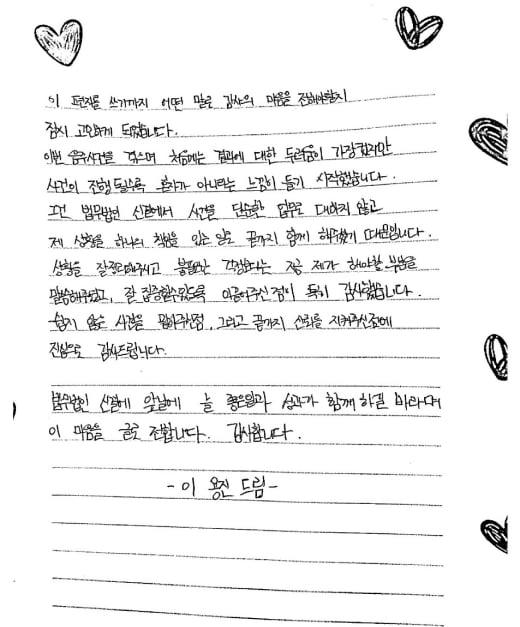 이 편지를 쓰기까지 어떤 말로 감사의 마음을 전해야할지
잠시 고민하게 되었습니다.
이번 음주사건을 겪으며 처음에는 결과에 대한 두려움이 가장컸지만
사건이 진행될수록 혼자가 아니라는 느낌이 들기 시작했습니다.
그건 법무법인 신결에서 사건을 단순한 업무로 대하지 않고
제 상황을 하나의 책임 있는 일로 끝까지 함께 해주셨기 때문입니다.
상황을 잘 주시고 불필요한 걱정보다는 지금 제가 해야할 부분을
말씀해주셨고, 잘 집중할수있도록 이끌어주신 점이 특히 감사했습니다.
쉽지 않은 사건을 맡아주신점, 그리고 끝까지 신뢰를 지켜주신점에
진심으로 감사드립니다.
법무법인 신결에 앞날에 늘 좋은일과 성과가 함께 하길 바라며
이 마음을 글로 전합니다. 감사합니다.
- 이 용진 드림 -